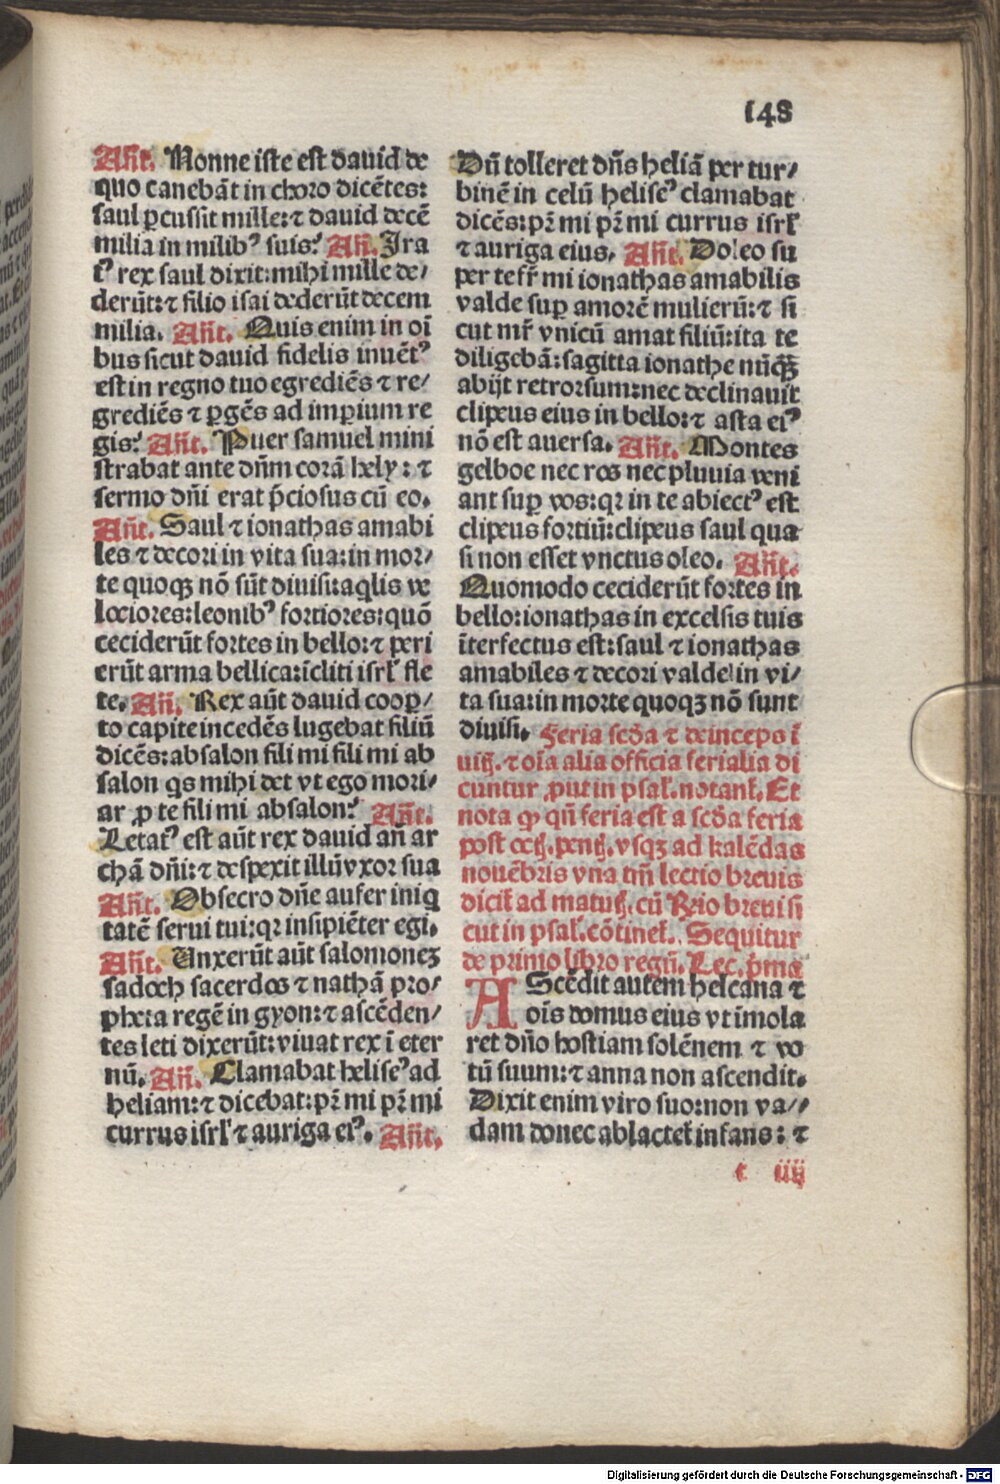 148
Añt. Nonne iste est dauid de
quo canebāt in choro dicētes:
saul ꝑcussit mille: ⁊ dauid decē
milia in milibꝰ suis. Añ. Ira
tꝰ rex saul dixit: mihi mille de/
derūt: ⁊ filio isai dederūt decem
milia. Añt. Quis enim in oī
bus sicut dauid fidelis inuētꝰ
est in regno tuo egrediēs ⁊ re/
grediēs ⁊ ꝑgēs ad imꝑium re
gis. Añt. Puer samuel mini
strabat ante dñm corā hely: ⁊
sermo dñi erat p̄ciosus cū eo.
Añt. Saul ⁊ ionathas amabi
les ⁊ decori in vita sua: in mor/
te quoqꝫ nō sūt diuisi: aq̄lis ve
lociores: leonibꝰ fortiores: quō
ceciderūt fortes in bello: ⁊ peri
erūt arma bellica: īcliti isrl̓ fle
te. Añ. Rex aūt dauid cooꝑ/
to capite incedēs lugebat filiū
dicēs: absalon fili mi fili mi ab
salon qs mihi det vt ego mori/
ar ꝓ te fili mi absalon. Añt.
Letatꝰ est aūt rex dauid añ ar
chā dñi: ⁊ despexit illū vxor sua
Añt. Obsecro dñe aufer iniq
tatē serui tui: qꝛ insipiēter egi.
Añt. Unxerūt aūt salomoneꝫ
sadoch sacerdos ⁊ nathā pro/
pheta regē in gyon: ⁊ ascēden/
tes leti dixerūt: viuat rex ī eter
nū. Añ. Clamabat heliseꝰ ad
heliam: ⁊ dicebat: pr̄ mi pr̄ mi
currus isrl̓ ⁊ auriga eiꝰ. Añt.
Dū tolleret dñs heliā per tur/
binē in celū heliseꝰ clamabat
dicēs: pr̄ mi pr̄ mi currus isrl̓
⁊ auriga eius. Añt. Doleo su
per te fr̄ mi ionathas amabilis
valde suꝑ amorē mulierū: ⁊ si
cut mr̄ vnicū amat filiū: ita te
diligebā: sagitta ionathe nūqꝫ
abijt retrorsum: nec declinauit
clipeus eius in bello: ⁊ asta eiꝰ
nō est auersa. Añt. Montes
gelboe nec ros nec pluuia veni
ant suꝑ vos: qꝛ in te abiectꝰ est
clipeus fortiū: clipeus saul qua
si non esset vnctus oleo. Añt.
Quomodo ceciderūt fortes in
bello: ionathas in excelsis tuis
īterfectus est: saul ⁊ ionathas
amabiles ⁊ decori valde in vi/
ta sua: in morte quoqꝫ nō sunt
diuisi. Feria scd̄a ⁊ deinceps ī
⁊ oīa alia officia ferialia di
cuntur ꝓut in psal̓. notant̓. Et
nota ꝙ qñ feria est a scd̄a feria
post vsqꝫ ad kalēdas
nouēbris vna tm̄ lectio breuis
dicit̓ ad cū Rꝛio breui si
cut in psal̓. cōtinet̓. Sequitur
de primo libro regū. Lec. p̄ma
AScēdit autem helcana ⁊
oīs domus eius vt īmola
ret dño hostiam solēnem ⁊ vo
tū suum: ⁊ anna non ascendit.
Dixit enim viro suo: non va//
dam donec ablactet̓ infans: ⁊
t iiij
Digitalisierung gefördert durch die Deutsche Forschungsgemeinschaft - DFG